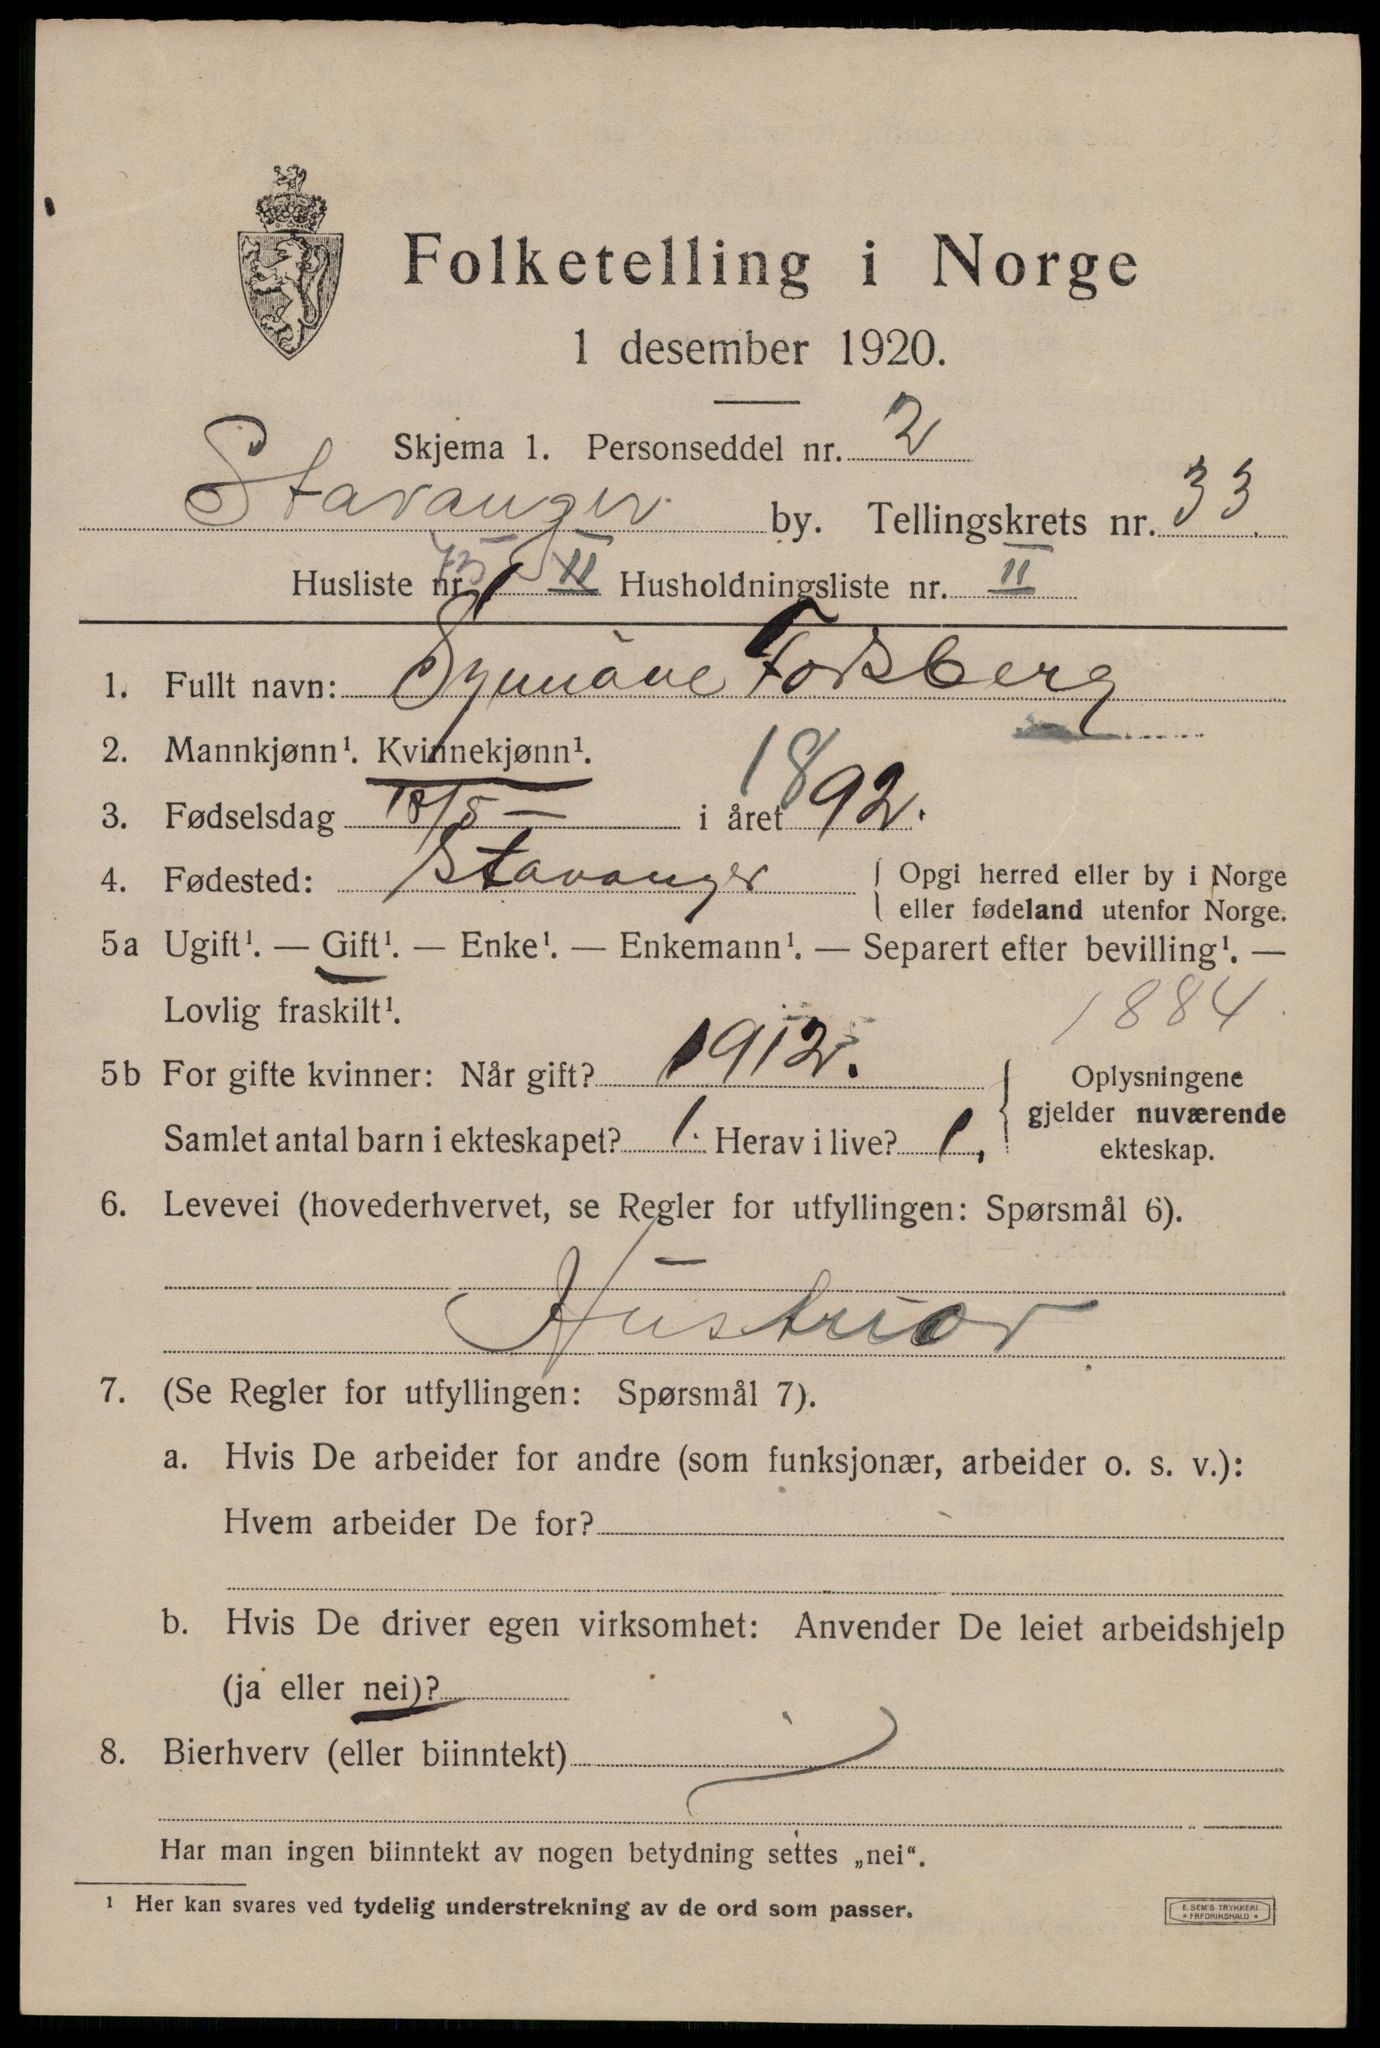 Folketelling i Norge
1 desember 1920.
Skjema 1. Personseddel nr. 2
Stavanger by. Tellingskrets nr. 33
Husliste nr. Husholdningsliste nr. II
1. Fullt navn: Synnöve Forsberg
2. Mannkjønn¹. Kvinnekjønn¹.
3. Fødselsdag 18/8 — i året 1892.
4. Fødested: Stavanger { Opgi herred eller by i Norge
eller fødeland utenfor Norge.
5a Ugift¹. — Gift¹. — Enke¹. — Enkemann¹. — Separert efter bevilling¹. —
Lovlig fraskilt¹. 1884
5b For gifte kvinner: Når gift? 1912. Oplysningene
gjelder nuværende
Samlet antal barn i ekteskapet? 1. Herav i live? 1. ekteskap.
6. Levevei (hovederhvervet, se Regler for utfyllingen: Spørsmål 6).
Hustruor
7. (Se Regler for utfyllingen: Spørsmål 7).
a. Hvis De arbeider for andre (som funksjonær, arbeider o. s. v.):
Hvem arbeider De for?
b. Hvis De driver egen virksomhet: Anvender De leiet arbeidshjelp
(ja eller nei)?
8. Bierhverv (eller biinntekt)
Har man ingen biinntekt av nogen betydning settes „nei“.
¹ Her kan svares ved tydelig understrekning av de ord som passer.
E. SEM'S TRYKKERI
FREDRIKSHALD